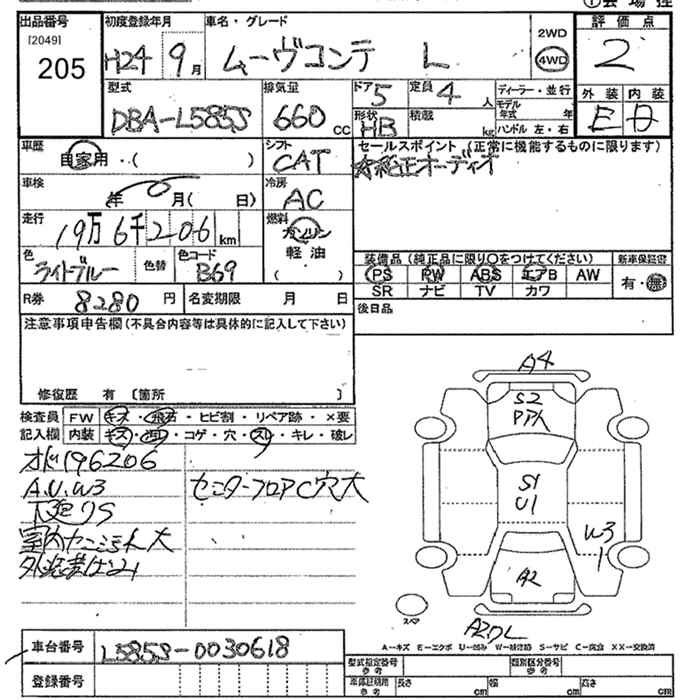 出品番号 初度登録年月 車名・グレード 評価点
[2049]
205 H24 9月 ムーヴコンテ L 2WD 4WD 2
型式 排気量 ドア 5 定員 4人 ディーラー・並行 外装 内装
DBA-L585S 660cc 形状 HB 積載 kg モデル年式 年 E D
ハンドル 左・右
車歴 シフト セールスポイント (正常に機能するものに限ります)
自家用・( ) CAT 純正オーディオ
車検 年 6月( 日) 冷房 AC
走行 燃料
19万6千206km ガソリン
色 色替 色コード 軽油
ライトブルー B69 ( )
装備品 (純正品に限り○をつけてください) 新車保証書
PS PW ABS エアB AW 有・無
SR ナビ TV カワ
R券 8280円 名変期限 月 日 後日品
注意事項申告欄(不具合内容等は具体的に記入して下さい)
修復歴 有 [箇所 ]
検査員 FW キズ・飛石・ヒビ割・リペア跡・×要
記入欄 内装 キズ・汚レ・コゲ・穴・スレ・キレ・破レ
オド196206
A.U.W3 センターフロアC穴大
下廻りS
室内ヤニ汚れ大
A4
S2
S1
U1
W3
A2
スペア
A―キズ E―エクボ U―凹み W―補修跡 S―サビ C―腐食 XX―交換済
車台番号 L585S-0030618
登録番号
型式指定番号 参考 類別区分番号 参考
車体証明用 参考 長さ cm 幅 cm 高さ cm